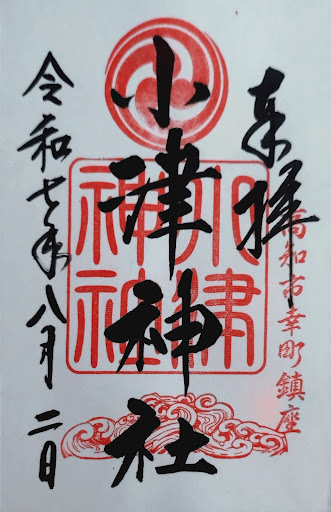 奉拝
高知市幸町鎮座
小津神社
小津
神社
令和七年八月二日